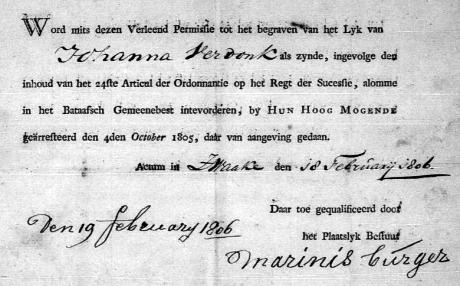 Word mits dezen Verleend Permissie tot het begraven van het Lyk van
Johanna Verdonk als zynde, ingevolge den
inhoud van het 24ste Articul der Ordonnantie op het Regt der Sucessie, alomme
in het Bataafsch Gemeenebest intevorderen, by HUN HOOG MOGENDE
geärresteerd den 4den October 1805, daar van aangeving gedaan.
Actum in Zwaake den 18 February 1806.
Daar toe gequalificeerd door
Den 19 february 1806
het Plaatslyk Bestuur
Marinis Burger